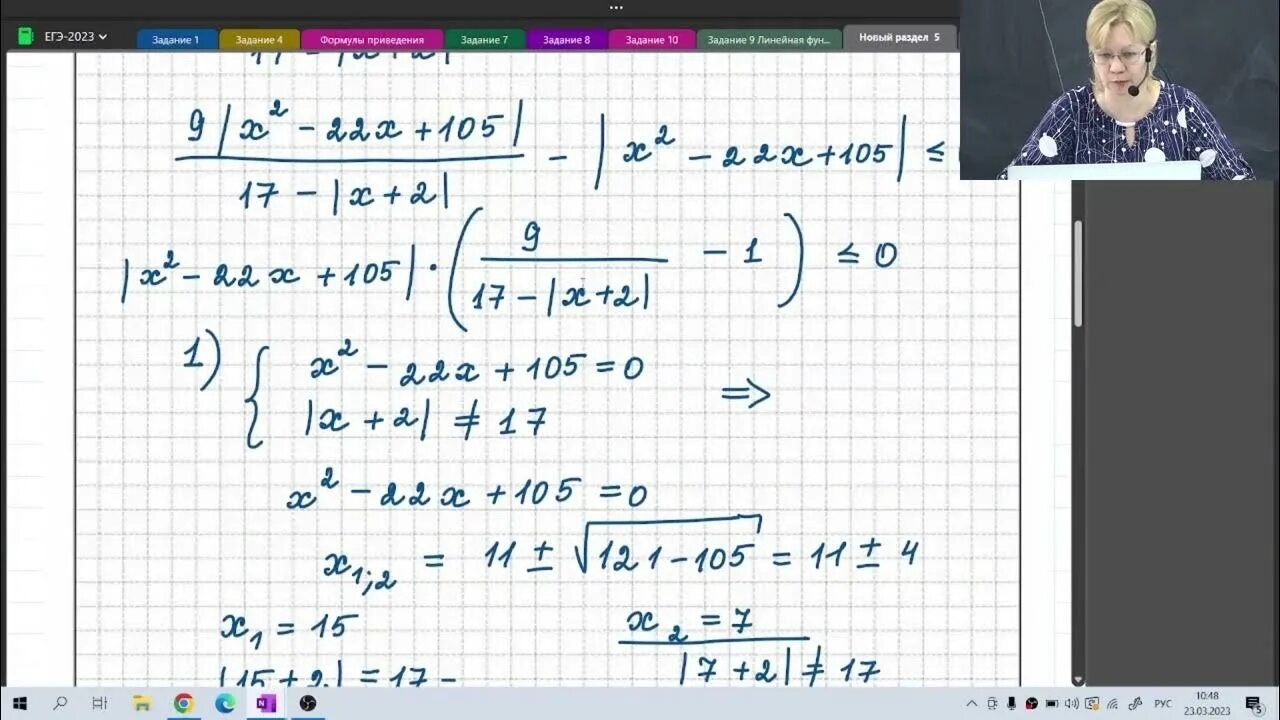 ЕГЭ-2023
Задание 1
Задание 4
Формулы приведения
Задание 7
Задание 8
Задание 10
Задание 9 Линейная фун...
Новый раздел 5
17 - |x+2|
9|x² - 22x + 105| / (17 - |x+2|) - |x² - 22x + 105| ≤
|x² - 22x + 105| · (9 / (17 - |x+2|) - 1) ≤ 0
1) { x² - 22x + 105 = 0
|x + 2| ≠ 17 ⇒
x² - 22x + 105 = 0
x₁;₂ = 11 ± √(121 - 105) = 11 ± 4
x₁ = 15
x₂ = 7
|15 + 2| = 17 -
|7 + 2| ≠ 17
РУС
10:48
23.03.2023
5